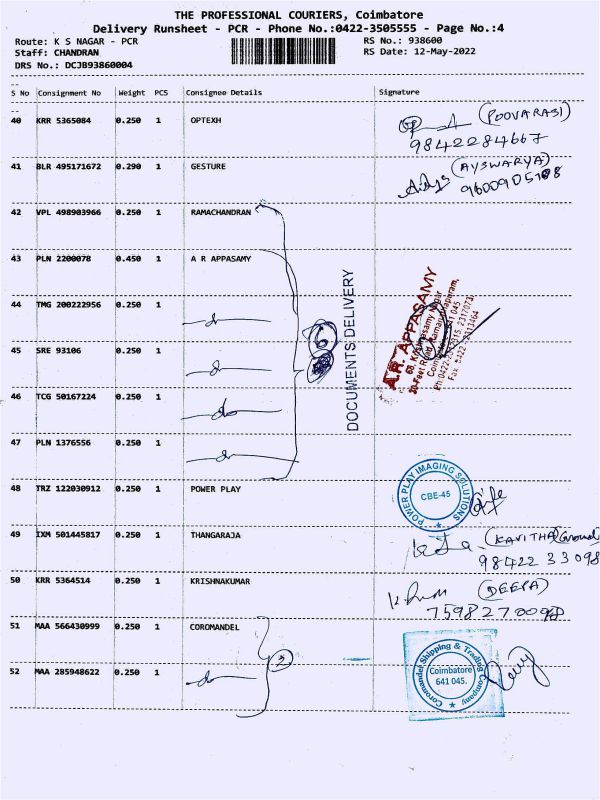 THE PROFESSIONAL COURIERS, Coimbatore
Delivery Runsheet - PCR - Phone No.:0422-3505555 - Page No.:4
Route: K S NAGAR - PCR RS No.: 938600
Staff: CHANDRAN RS Date: 12-May-2022
DRS No.: DCJB93860004
S No Consignment No Weight PCS Consignee Details Signature
40 KRR 5365084 0.250 1 OPTEXH (POOVARASI)
9842284667
41 BLR 495171672 0.290 1 GESTURE (AYSWARYA)
42 VPL 498903966 0.250 1 RAMACHANDRAN
43 PLN 2200078 0.450 1 A R APPASAMY
44 TMG 200222956 0.250 1 do
45 SRE 93106 0.250 1 do
46 TCG 50167224 0.250 1 do
47 PLN 1376556 0.250 1 do
6
DOCUMENTS DELIVERY
A.R. APPASAMY
48 TRZ 122030912 0.250 1 POWER PLAY
POWER PLAY IMAGING SOLUTIONS
CBE-45
49 IXM 501445817 0.250 1 THANGARAJA (KAVITHA)
98422 33098
50 KRR 5364514 0.250 1 KRISHNAKUMAR (DEEPA)
51 MAA 566430999 0.250 1 COROMANDEL
52 MAA 285948622 0.250 1 do
2
Coromandel Shipping & Trading Company
Coimbatore
641 045.